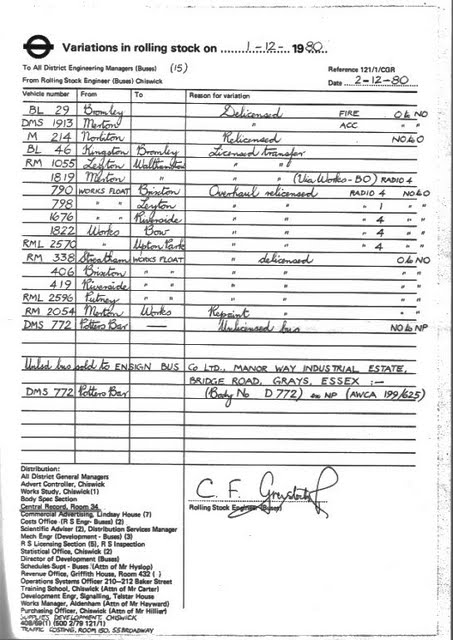 Variations in rolling stock on 1-12- 1980
To All District Engineering Managers (Buses) (15) Reference 121/1/CGR
From Rolling Stock Engineer (Buses) Chiswick Date 2-12-80
Vehicle number From To Reason for variation
BL 29 Bromley Delicensed FIRE O to NO
DMS 1913 Merton " ACC " "
M 214 Norbiton Relicensed NO to O
BL 46 Kingston Bromley Licensed transfer
RM 1055 Leyton Walthamstow " "
1819 Merton " " (Via Works - BO) RADIO 4
790 WORKS FLOAT Brixton Overhaul relicensed RADIO 4 NO to O
798 " " Leyton " " " 1 " "
1676 " " Riverside " " " 4 " "
1822 Works Bow " " " 4 " "
RML 2570 " Upton Park " " " 4 " "
RM 338 Streatham WORKS FLOAT " delicensed O to NO
406 Brixton " " " " " "
419 Riverside " " " " " "
RML 2596 Putney " " " " " "
RM 2054 Merton Works Repaint " " "
DMS 772 Potters Bar — Unlicensed bus NO to NP
Unlsd bus sold to ENSIGN BUS Co LTD., MANOR WAY INDUSTRIAL ESTATE,
BRIDGE ROAD, GRAYS, ESSEX :—
DMS 772 Potters Bar (Body No D 772) NP (AWCA 199/625)
Distribution:
All District General Managers
Advert Controller, Chiswick
Works Study, Chiswick (1)
Body Spec Section
Central Record, Room 34
Commercial Advertising, Lindsay House (7)
Costs Office (R S Engr Buses) (2)
Scientific Adviser (2), Distribution Services Manager
Mech Engr (Development - Buses) (3)
R S Licensing Section (5), R S Inspection
Statistical Office, Chiswick (2)
Director of Development (Buses)
Schedules Supt - Buses (Attn of Mr Hyslop)
Revenue Office, Griffith House, Room 432 ( )
Operations Systems Officer 210-212 Baker Street
Training School, Chiswick (Attn of Mr Carter)
Development Engr, Signalling, Telstar House
Works Manager, Aldenham (Attn of Mr Hayward)
Purchasing Officer, Chiswick (Attn of Mr Hillier)
SUPPLIES DEVELOPMENT, CHISWICK
408/69(1) (500 2/79 121/1)
TRAFFIC COSTING, ROOM 150, 55 BROADWAY
C. F.
Rolling Stock Engineer (Buses)